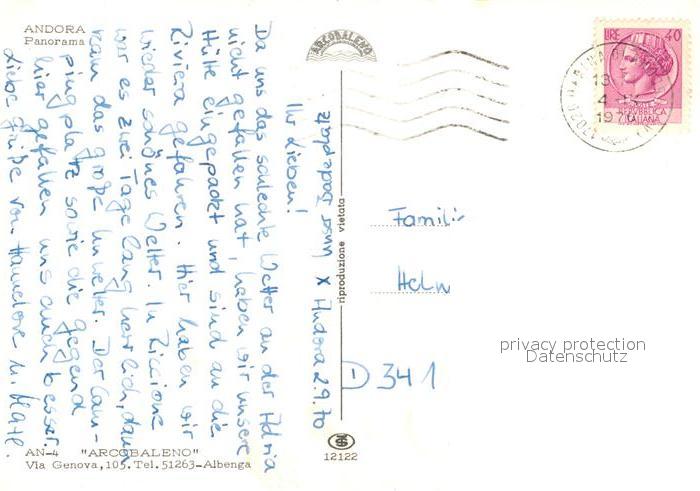 ANDORA
Panorama
ARCOBALENO
LIRE 40
REPUBBLICA
ITALIANA
13
4
1970
17020
Andora 2.9.70
X unser Badeplatz
Ihr Lieben!
Da uns das schlechte Wetter an der Adria
nicht gefallen hat, haben wir unsere
Hütte eingepackt und sind an die
Riviera gefahren. Hier haben wir
wieder schönes Wetter. In Riccione
war es zwei Tage lang herrlich, dann
kam das große Unwetter. Der Cam-
pingplatz sowie die Gegend
hier gefallen uns auch besser.
Liebe Grüße von Hannelore u.
riproduzione vietata
Familie
Helm
D 341
privacy protection
Datenschutz
AN-4 "ARCOBALENO"
Via Genova,105.Tel.51263-Albenga
12122